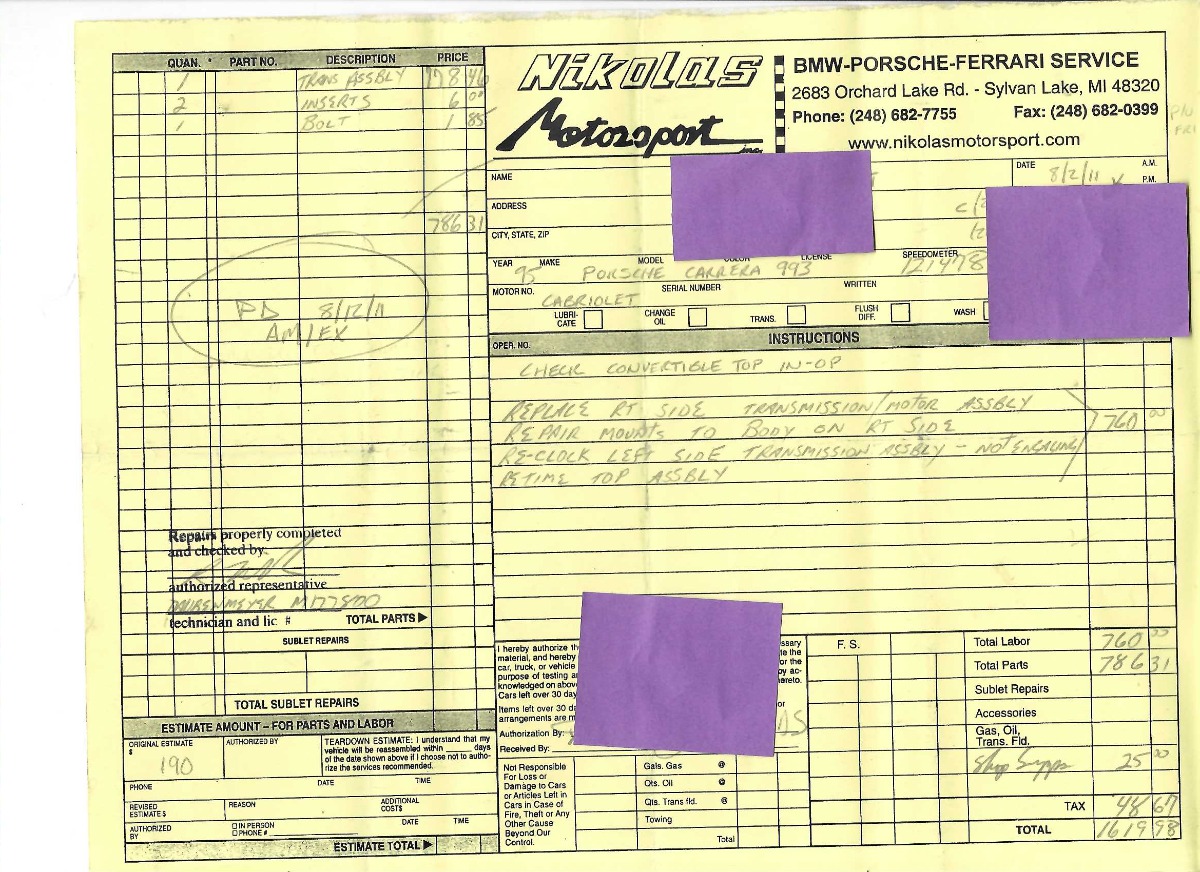 QUAN. * PART NO. DESCRIPTION PRICE
1 TRANS ASSBLY 778 46
2 INSERTS 6 00
1 BOLT 1 85
786 31
PD 8/12/11
AM/EX
Repairs properly completed
and checked by:
authorized representative
technician and lic #
TOTAL PARTS ▶
SUBLET REPAIRS
TOTAL SUBLET REPAIRS
ESTIMATE AMOUNT – FOR PARTS AND LABOR
ORIGINAL ESTIMATE
$ 190
AUTHORIZED BY
TEARDOWN ESTIMATE: I understand that my
vehicle will be reassembled within ______ days
of the date shown above if I choose not to autho-
rize the services recommended.
PHONE DATE TIME
REVISED
ESTIMATE $
REASON
ADDITIONAL
COST$
AUTHORIZED
BY
☐ IN PERSON
☐ PHONE #
DATE TIME
ESTIMATE TOTAL ▶
Nikolas
Motorsport inc.
BMW-PORSCHE-FERRARI SERVICE
2683 Orchard Lake Rd. - Sylvan Lake, MI 48320
Phone: (248) 682-7755 Fax: (248) 682-0399
www.nikolasmotorsport.com
NAME
DATE 8/2/11
A.M.
P.M.
ADDRESS
CITY, STATE, ZIP
YEAR 95 MAKE PORSCHE MODEL CARRERA 993 LICENSE SPEEDOMETER 121478
MOTOR NO. CABRIOLET SERIAL NUMBER WRITTEN
LUBRI-
CATE
CHANGE
OIL
TRANS.
FLUSH
DIFF.
WASH
OPER. NO. INSTRUCTIONS
CHECK CONVERTIBLE TOP IN-OP
REPLACE RT SIDE TRANSMISSION/MOTOR ASSBLY
REPAIR MOUNTS TO BODY ON RT SIDE 760 00
RE-CLOCK LEFT SIDE TRANSMISSION ASSBLY – NOT ENGAGING
RETIME TOP ASSBLY
I hereby authorize th
material, and hereby
car, truck, or vehicle
purpose of testing a
knowledged on above
Cars left over 30 day
Items left over 30 d
arrangements are m
Authorization By:
Received By:
ssary
te the
or the
y ac-
hereto.
or
Not Responsible
For Loss or
Damage to Cars
or Articles Left in
Cars in Case of
Fire, Theft or Any
Other Cause
Beyond Our
Control.
Gals. Gas @
Qts. Oil @
Qts. Trans fld. @
Towing
Total
F. S.
Total Labor 760 00
Total Parts 786 31
Sublet Repairs
Accessories
Gas, Oil,
Trans. Fld.
Shop Supps 25 00
TAX 48 67
TOTAL 1619 98